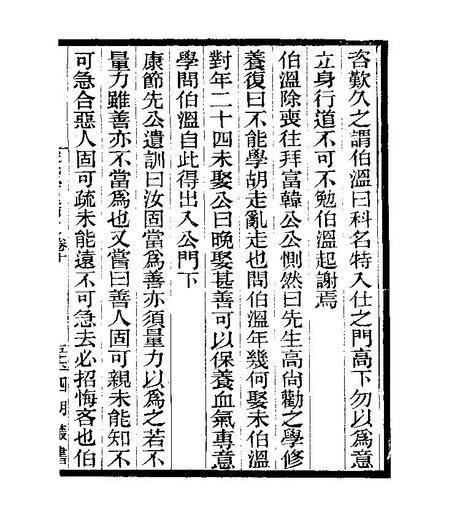 咨歎久之謂伯溫曰科名特入仕之門高下勿以爲意
立身行道不可不勉伯溫起謝焉
伯溫除喪往拜富韓公公惻然曰先生高尙勸之學修
養復曰不能學胡走亂走也問伯溫年幾何娶未伯溫
對年二十四未娶公曰晚娶甚善可以保養血氣專意
學問伯溫自此得出入公門下
康節先公遺訓曰汝固當爲善亦須量力以爲之若不
量力雖善亦不當爲也又嘗曰善人固可親未能知不
可急合惡人固可疏未能遠不可急去必招悔吝也伯
四明叢書